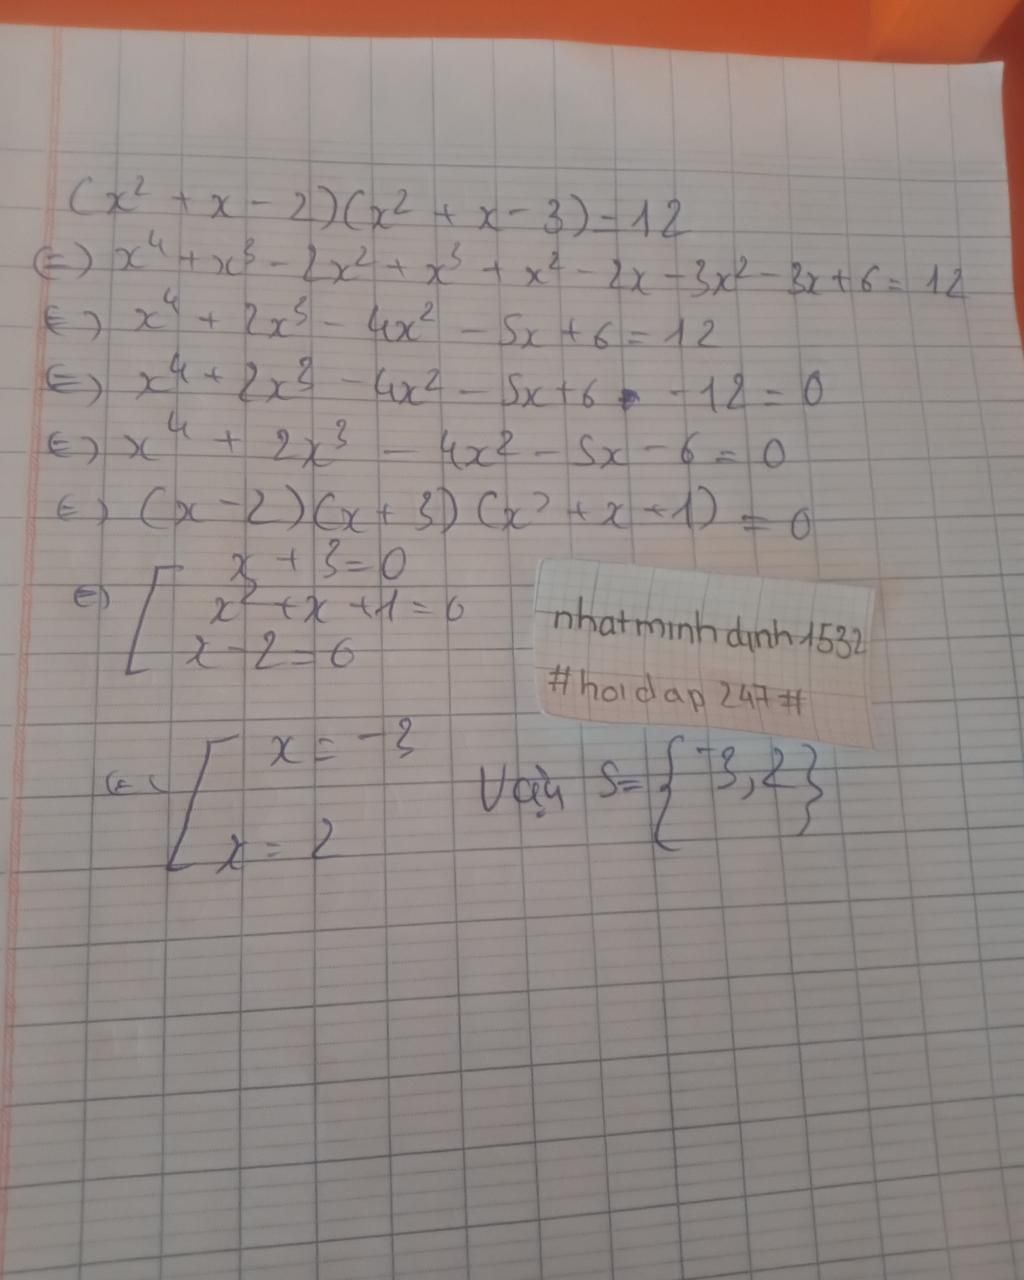 (x² + x - 2)(x² + x - 3) = 12
(=) x⁴ + x³ - 2x² + x³ + x² - 2x - 3x² - 3x + 6 = 12
(=) x⁴ + 2x³ - 4x² - 5x + 6 = 12
(=) x⁴ + 2x³ - 4x² - 5x + 6 - 12 = 0
(=) x⁴ + 2x³ - 4x² - 5x - 6 = 0
(=) (x - 2)(x + 3)(x² + x + 1) = 0
(=) [ x + 3 = 0
x² + x + 1 = 0
x - 2 = 0
nhatminhdinh1532
#hoidap247#
(=) [ x = -3
x = 2
Vậy S = {-3, 2}